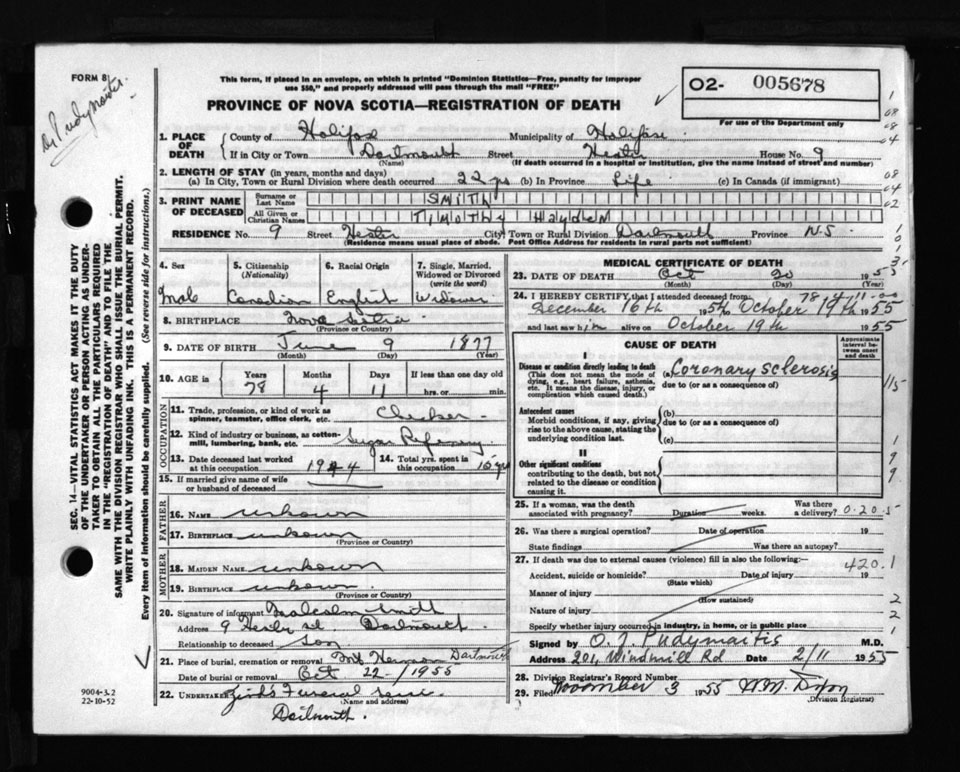 FORM 8
This form, if placed in an envelope, on which is printed "Dominion Statistics—Free, penalty for improper
use $50," and properly addressed will pass through the mail "FREE"
O2- 005678
For use of the Department only
PROVINCE OF NOVA SCOTIA—REGISTRATION OF DEATH
1. PLACE OF DEATH County of Halifax Municipality of Halifax
If in City or Town Dartmouth Street Hester House No. 9
(Name) (If death occurred in a hospital or institution, give the name instead of street and number)
2. LENGTH OF STAY (in years, months and days)
(a) In City, Town or Rural Division where death occurred 22 yrs (b) In Province Life (c) In Canada (if immigrant)
3. PRINT NAME OF DECEASED Surname or Last Name SMITH
All Given or Christian Names TIMOTHY HAYDEN
RESIDENCE No. 9 Street Hester City, Town or Rural Division Dartmouth Province N.S.
(Residence means usual place of abode. Post Office Address for residents in rural parts not sufficient)
4. Sex Male
5. Citizenship (Nationality) Canadian
6. Racial Origin English
7. Single, Married, Widowed or Divorced (write the word) Widower
8. BIRTHPLACE Nova Scotia
(Province or Country)
9. DATE OF BIRTH June 9 1877
(Month) (Day) (Year)
10. AGE in Years Months Days If less than one day old
78 4 11 hrs. or min.
OCCUPATION
11. Trade, profession, or kind of work as spinner, teamster, office clerk, etc. Checker
12. Kind of industry or business, as cotton-mill, lumbering, bank, etc. Sugar Refinery
13. Date deceased last worked at this occupation 1944
14. Total yrs. spent in this occupation 15 yrs
15. If married give name of wife or husband of deceased
FATHER
16. NAME unkown
17. BIRTHPLACE unkown
(Province or Country)
MOTHER
18. MAIDEN NAME unkown
19. BIRTHPLACE unkown
(Province or Country)
20. Signature of informant Malcolm Smith
Address 9 Hester st Dartmouth
Relationship to deceased Son
21. Place of burial, cremation or removal Mt Hermon Dartmouth
Date of burial or removal Oct 22 - 1955
22. UNDERTAKER Funeral
(Name and address)
Dartmouth.
MEDICAL CERTIFICATE OF DEATH
23. DATE OF DEATH Oct 20 1955
(Month) (Day) (Year)
78-4-11-00
24. I HEREBY CERTIFY that I attended deceased from:
December 16th 1954 to October 19th 1955
and last saw him alive on October 19th 1955
CAUSE OF DEATH
Approximate interval between onset and death
I
Disease or condition directly leading to death
(This does not mean the mode of dying, e.g., heart failure, asthenia, etc. It means the disease, injury, or complication which caused death.)
(a) Coronary Sclerosis
due to (or as a consequence of)
Antecedent causes
Morbid conditions, if any, giving rise to the above cause, stating the underlying condition last.
(b)
due to (or as a consequence of)
(c)
II
Other significant conditions
contributing to the death, but not related to the disease or condition causing it.
25. If a woman, was the death associated with pregnancy? Duration weeks. Was there a delivery?
0.20.5
26. Was there a surgical operation? Date of operation 19
State findings Was there an autopsy?
27. If death was due to external causes (violence) fill in also the following:—
420.1
Accident, suicide or homicide? Date of injury 19
(State which)
Manner of injury
(How sustained)
Nature of injury
Specify whether injury occurred in industry, in home, or in public place
Signed by O. J. Pudymaitis M.D.
Address 201, Windmill Rd Date 2/11 1955
28. Division Registrar's Record Number
29. Filed November 3 1955 W.M. Dixon
(Division Registrar)
SEC. 14—VITAL STATISTICS ACT MAKES IT THE DUTY
OF THE UNDERTAKER OR PERSON ACTING AS UNDER-
TAKER TO OBTAIN ALL THE PARTICULARS REQUIRED
IN THE "REGISTRATION OF DEATH" AND TO FILE THE
SAME WITH THE DIVISION REGISTRAR WHO SHALL ISSUE THE BURIAL PERMIT.
WRITE PLAINLY WITH UNFADING INK. THIS IS A PERMANENT RECORD.
Every item of information should be carefully supplied. (See reverse side for instructions.)
9004-3.2
22-10-52